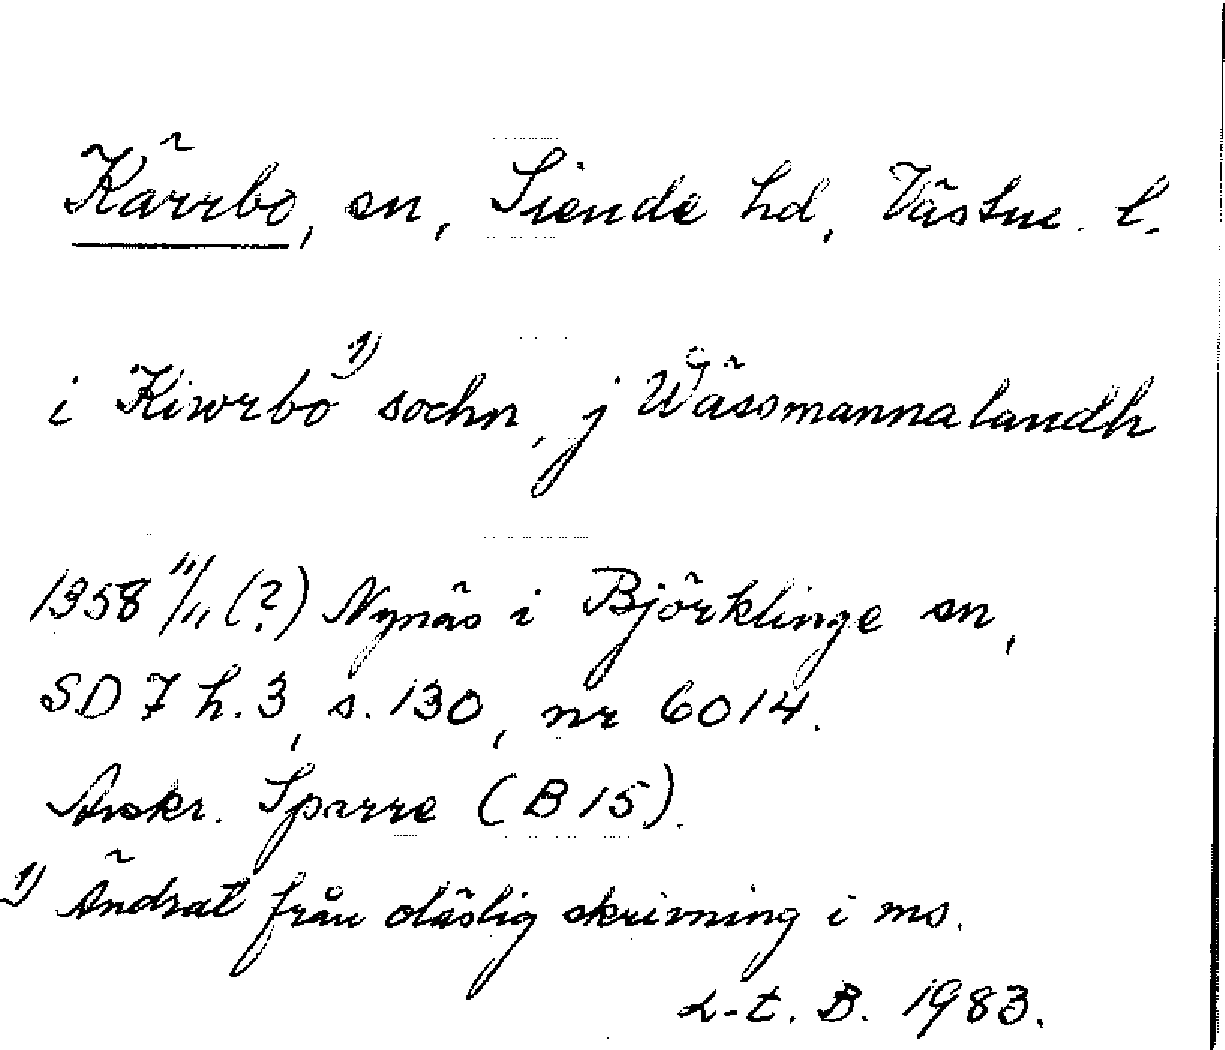 Kärrbo, sn, Siende hd, Västm. l.
i Kiwrbo¹⁾ sochn, j Wässmannalandh
1358 11/11 (?) Nynäs i Björklinge sn,
SD 7 h. 3, s. 130, nr 6014.
Avskr. Sparre (B 15).
¹⁾ Ändrat från oläslig skrivning i ms.
L-t. B. 1983.